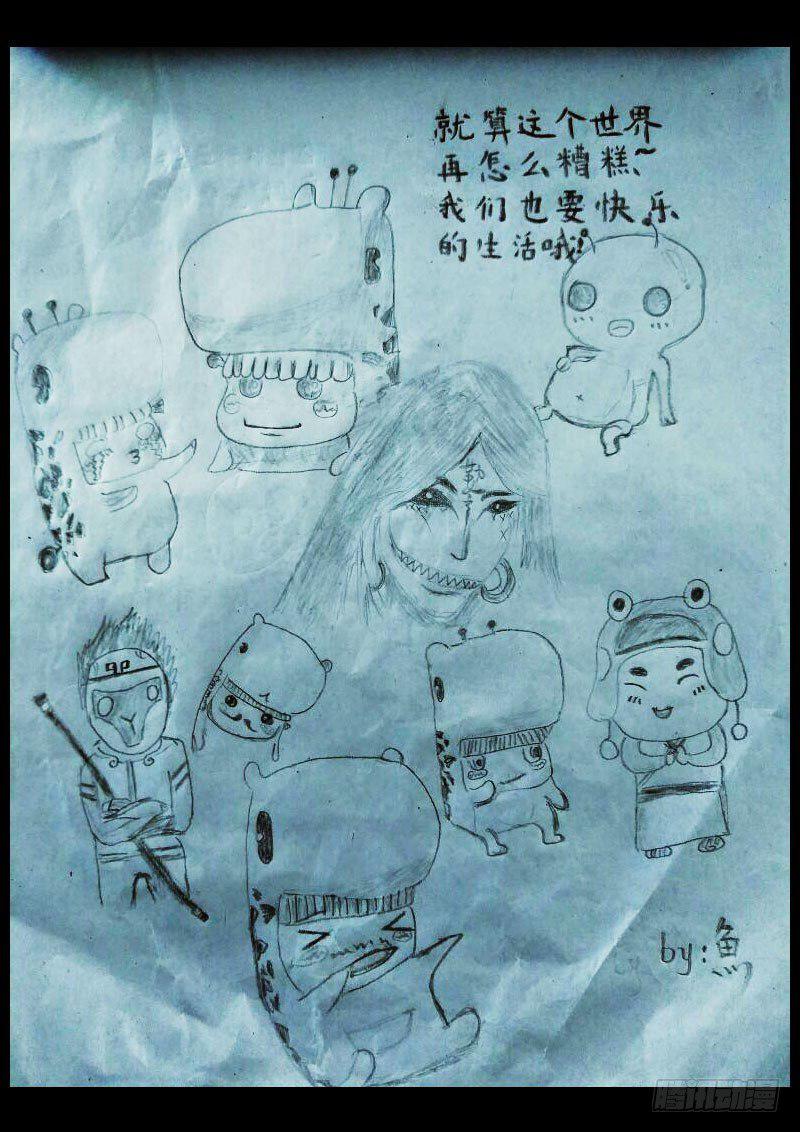 就算这个世界
再怎么糟糕~
我们也要快乐
的生活哦!
勒
by:魚
腾讯动漫